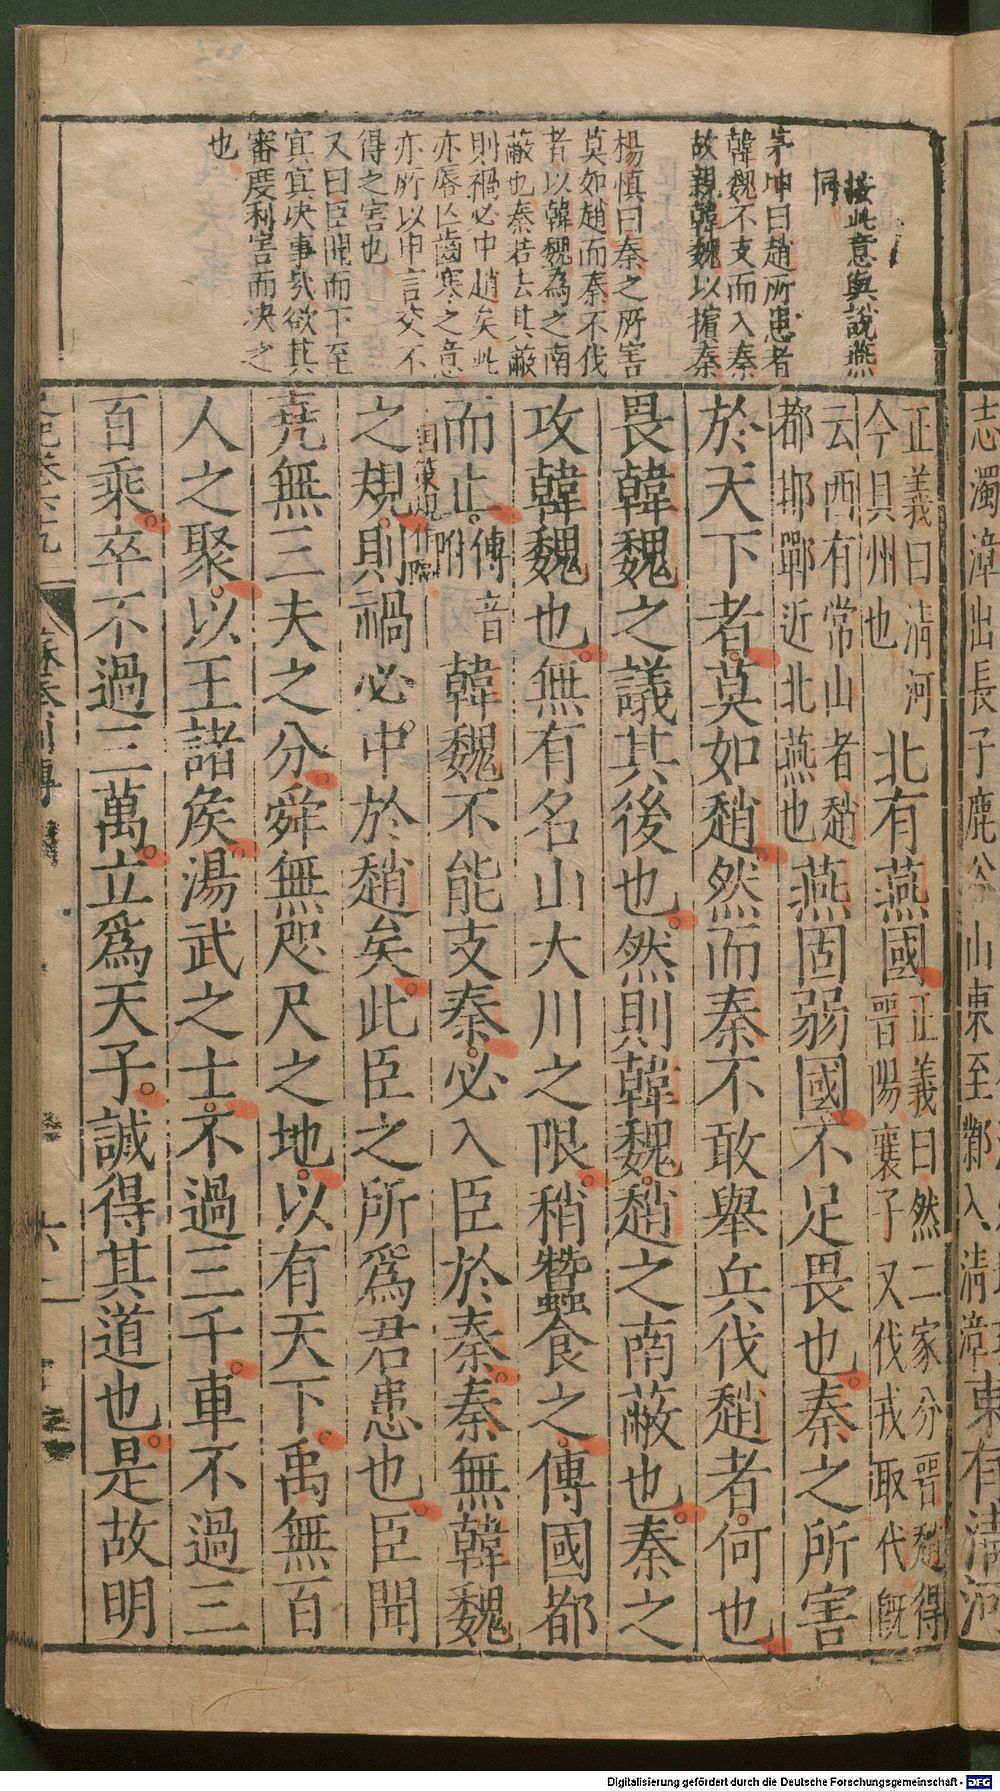 按此意與說燕
同
茅坤曰趙所患者
韓魏不支而入秦
故親韓魏以擯秦
楊慎曰秦之所害
莫如趙而秦不伐
者以韓魏為之南
蔽也秦若去其蔽
則禍必中趙矣此
亦唇亡齒寒之意
亦所以申言交不
得之害也
又曰臣聞而下至
冥冥决事哉欲其
審度利害而决之
也
正義曰清河
今貝州也
北有燕國
正義曰然二家分晉趙得
晉陽襄子又伐戎取代既
云西有常山者趙
都邯鄲近北燕也
燕固弱國不足畏也秦之所害
於天下者莫如趙然而秦不敢舉兵伐趙者何也
畏韓魏之議其後也然則韓魏趙之南蔽也秦之
攻韓魏也無有名山大川之限稍蠶食之傅國都
而止
傅音
附
韓魏不能支秦必入臣於秦秦無韓魏
之規
國策規作隔
則禍必中於趙矣此臣之所爲君患也臣聞
堯無三夫之分舜無咫尺之地以有天下禹無百
人之聚以王諸侯湯武之士不過三千車不過三
百乘卒不過三萬立爲天子誠得其道也是故明
蘇秦列傳
六
志濁漳出長子鹿谷山東至鄴入清漳
東有清河
Digitalisierung gefördert durch die Deutsche Forschungsgemeinschaft - DFG